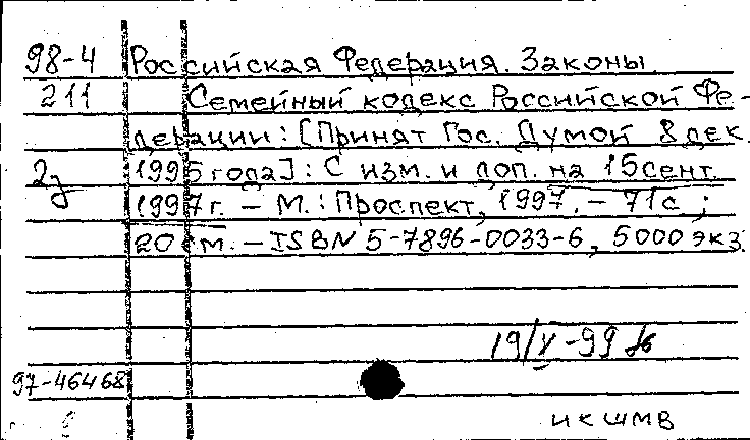 98-4 Российская Федерация. Законы.
211 Семейный кодекс Российской Фе-
дерации: [Принят Гос. Думой 8 дек.
1995 года]: С изм. и доп. на 15 сент.
1997 г. – М.: Проспект, 1997. – 71 с.;
20 см. – ISBN 5-7896-0033-6, 5000 экз.
19/V-99
97-46468
ИКШМВ